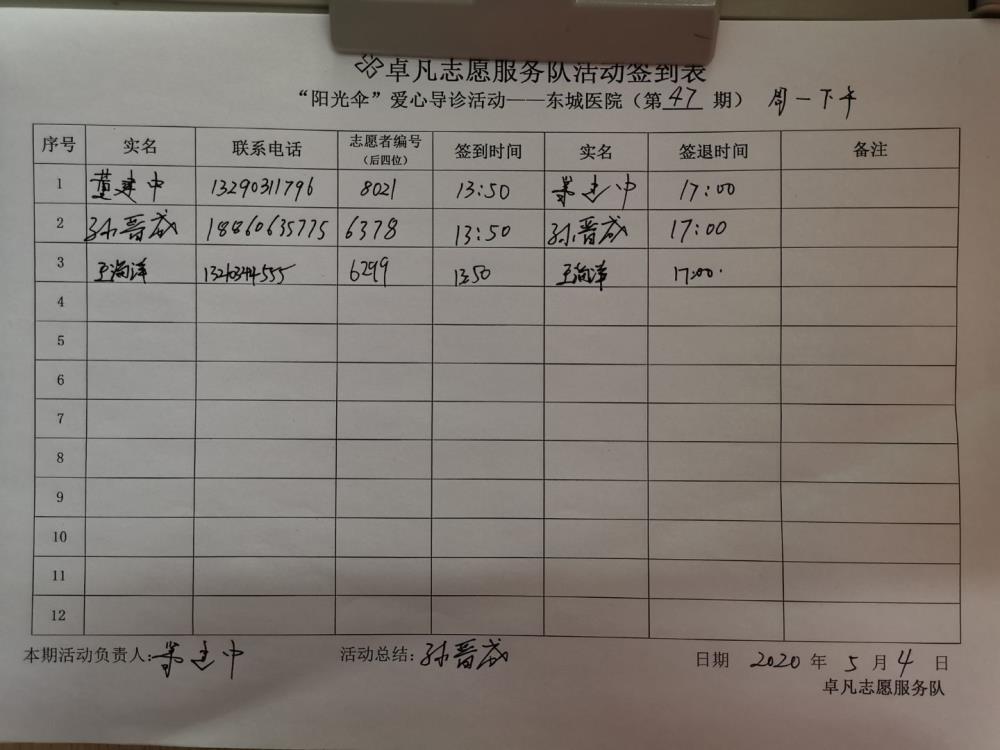 卓凡志愿服务队活动签到表
“阳光伞”爱心导诊活动——东城医院（第 47 期） 周一下午
序号 实名 联系电话 志愿者编号（后四位） 签到时间 实名 签退时间 备注
1 董建中 13290311796 8021 13:50 董建中 17:00
2 孙晋成 18860635775 6378 13:50 孙晋成 17:00
3 王海洋 6299 13:50 王海洋 17:00
4
5
6
7
8
9
10
11
12
本期活动负责人：董建中 活动总结：孙晋成 日期 2020 年 5 月 4 日
卓凡志愿服务队